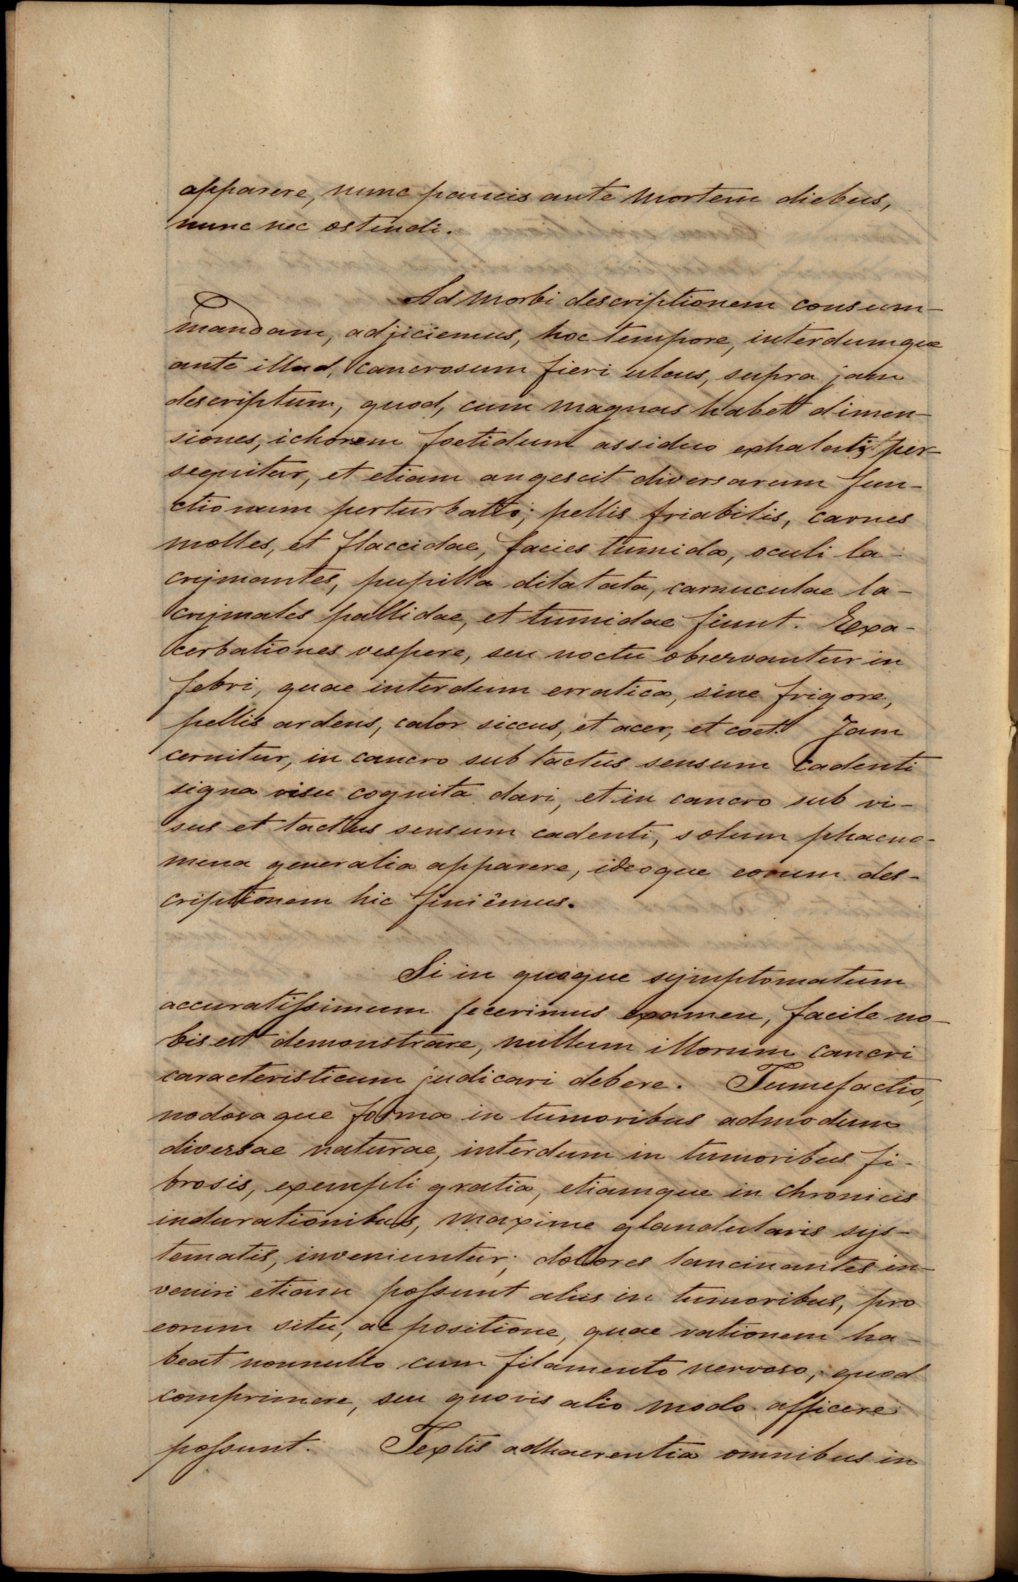 apparere, nunc paucis ante mortem diebus,
nunc nec ostendi.
Ad morbi descriptionem consum-
mandam, adjiciemus, hoc tempore, interdumque
ante illud, cancrosum fieri ulcus, supra jam
descriptum, quod, cum magnas habet dimen-
siones, ichorem foetidum assiduo exhalati per-
sequitur, et etiam augescit diversarum fun-
ctionum perturbatio; pellis friabilis, carnes
molles, et flaccidae, facies tumida, oculi la-
crymantes, pupilla dilatata, carunculae la-
crymales pallidae, et tumidae fiunt. Exa-
cerbationes vespere, seu noctu observantur in
febri, quae interdum erratica, sine frigore,
pellis ardens, calor siccus, et acer, et coet. Jam
cernitur, in cancro sub tactus sensum cadenti
signa visu cognita dari, et in cancro sub vi-
sus et tactus sensum cadenti, solum phaeno-
mena generalia apparere, ideoque eorum des-
criptionem hic finiêmus.
Si in quoque symptomatum
accuratissimum fecerimus examen, facile no-
bis est demonstrare, nullum illorum cancri
caracteristicum judicari debere. Tumefactio,
nodosaque forma in tumoribus admodum
diversae naturae, interdum in tumoribus fi-
brosis, exempli gratia, etiamque in chronicis
indurationibus, maxime glandularis sys-
tematis, inveniuntur; dolores lancinantes in-
veniri etiam possunt aliis in tumoribus, pro
eorum situ, ac positione, quae rationem ha-
beat nonnullo cum filamento nervoso, quod
comprimere, seu quovis alio modo afficere
possunt. Textis adhaerentia omnibus in